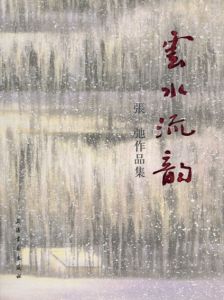 雲水流韵
張弛作品集